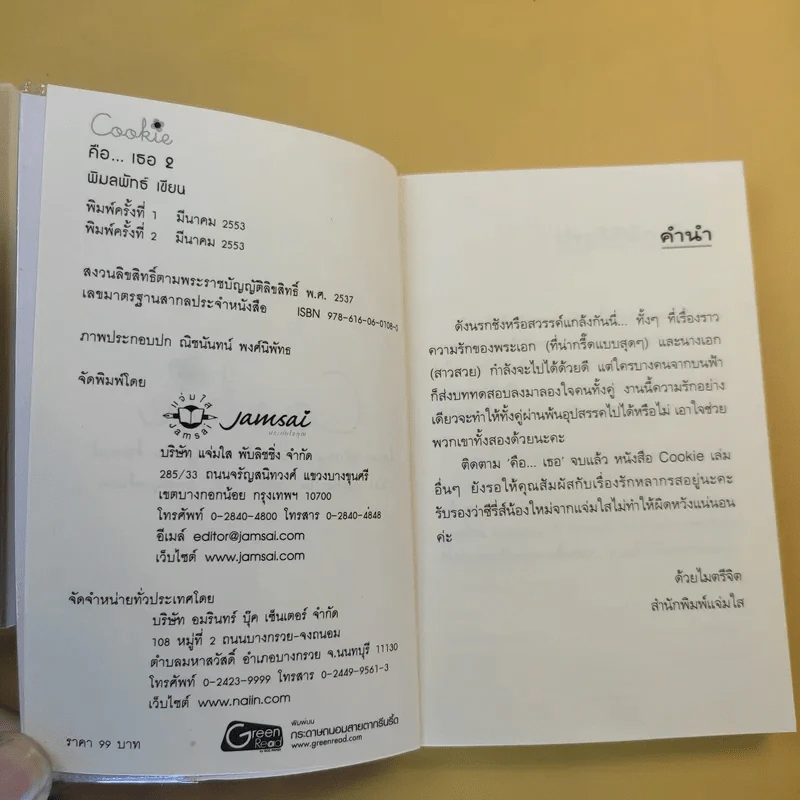 Cookie
คือ... เธอ 2
พิมลพัทธ์ เขียน
พิมพ์ครั้งที่ 1 มีนาคม 2553
พิมพ์ครั้งที่ 2 มีนาคม 2553
สงวนลิขสิทธิ์ตามพระราชบัญญัติลิขสิทธิ์ พ.ศ. 2537
เลขมาตรฐานสากลประจำหนังสือ ISBN 978-616-06-0108-0
ภาพประกอบปก ณิชนันทน์ พงศ์นิพัทธ
จัดพิมพ์โดย
แจ่มใส
Jamsai
Jamsai
บริษัท แจ่มใส พับลิชชิ่ง จำกัด
285/33 ถนนจรัญสนิทวงศ์ แขวงบางขุนศรี
เขตบางกอกน้อย กรุงเทพฯ 10700
โทรศัพท์ 0-2840-4800 โทรสาร 0-2840-4848
อีเมล์ editor@jamsai.com
เว็บไซต์ www.jamsai.com
จัดจำหน่ายทั่วประเทศโดย
บริษัท อมรินทร์ บุ๊ค เซ็นเตอร์ จำกัด
108 หมู่ที่ 2 ถนนบางกรวย-จงถนอม
ตำบลมหาสวัสดิ์ อำเภอบางกรวย จ.นนทบุรี 11130
โทรศัพท์ 0-2423-9999 โทรสาร 0-2449-9561-3
เว็บไซต์ www.naiin.com
ราคา 99 บาท
Green Read
พิมพ์บน
กระดาษถนอมสายตากรีนรี้ด
www.greenread.com
คำนำ
ดังนรกชังหรือสวรรค์แกล้งกันนี่... ทั้งๆ ที่เรื่องราว
ความรักของพระเอก (ที่น่ากรี๊ดแบบสุดๆ) และนางเอก
(สาวสวย) กำลังจะไปได้ด้วยดี แต่ใครบางคนจากบนฟ้า
ก็ส่งบททดสอบลงมาลองใจคนทั้งคู่ งานนี้ความรักอย่าง
เดียวจะทำให้ทั้งคู่ผ่านพ้นอุปสรรคไปได้หรือไม่ เอาใจช่วย
พวกเขาทั้งสองด้วยนะคะ
ติดตาม ‘คือ... เธอ’ จบแล้ว หนังสือ Cookie เล่ม
อื่นๆ ยังรอให้คุณสัมผัสกับเรื่องรักหลากรสอยู่นะคะ
รับรองว่าซีรี่ส์น้องใหม่จากแจ่มใสไม่ทำให้ผิดหวังแน่นอน
ค่ะ
ด้วยไมตรีจิต
สำนักพิมพ์แจ่มใส